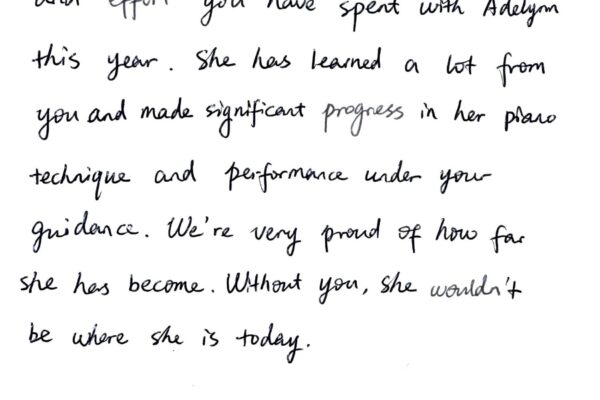 and effort you have spent with Adelynn
this year. She has learned a lot from
you and made significant progress in her piano
technique and performance under your
guidance. We're very proud of how far
she has become. Without you, she wouldn't
be where she is today.